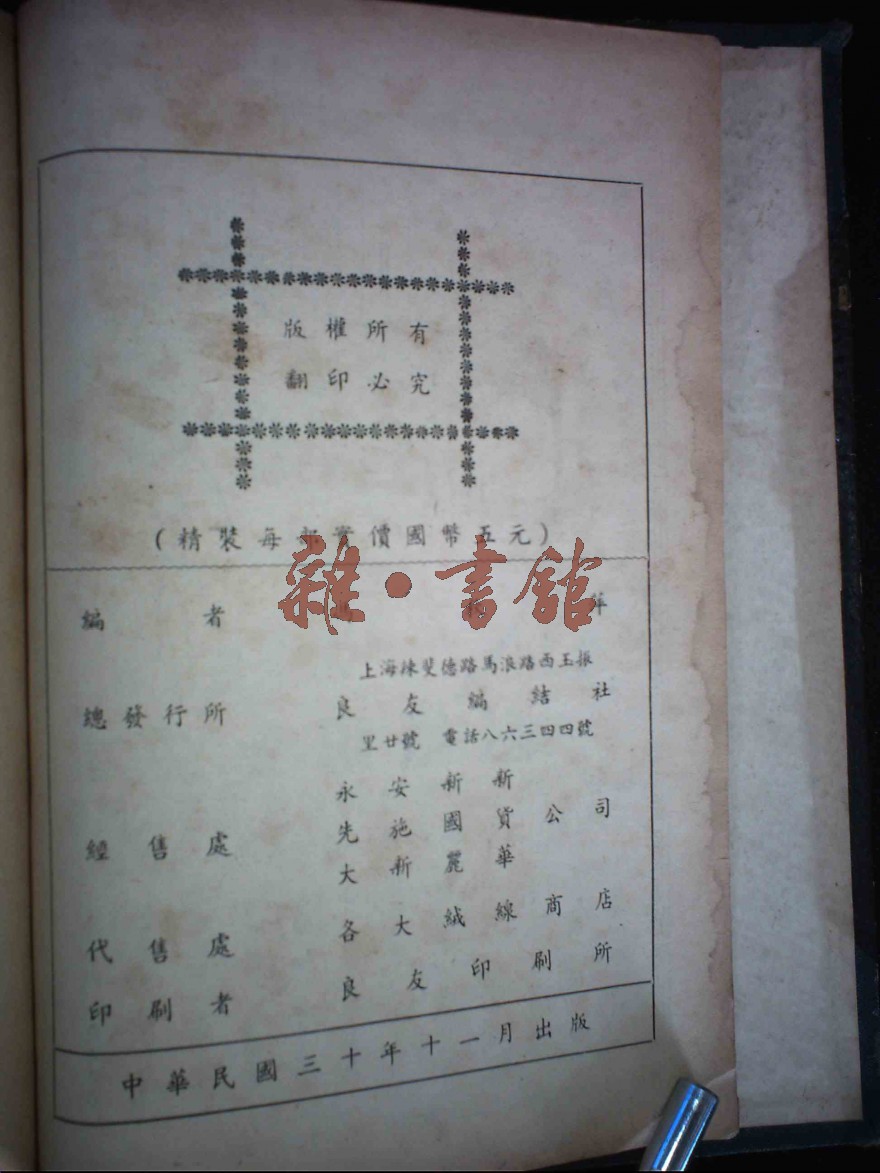 版權所有
翻印必究
(精裝每部實價國幣五元)
雜·書館
編者 萍
上海辣斐德路馬浪路西玉振
總發行所 良友編結社
里廿號 電話八六三四四號
永安新新
經售處 先施國貨公司
大新麗華
代售處 各大絨線商店
印刷者 良友印刷所
中華民國三十年十一月出版